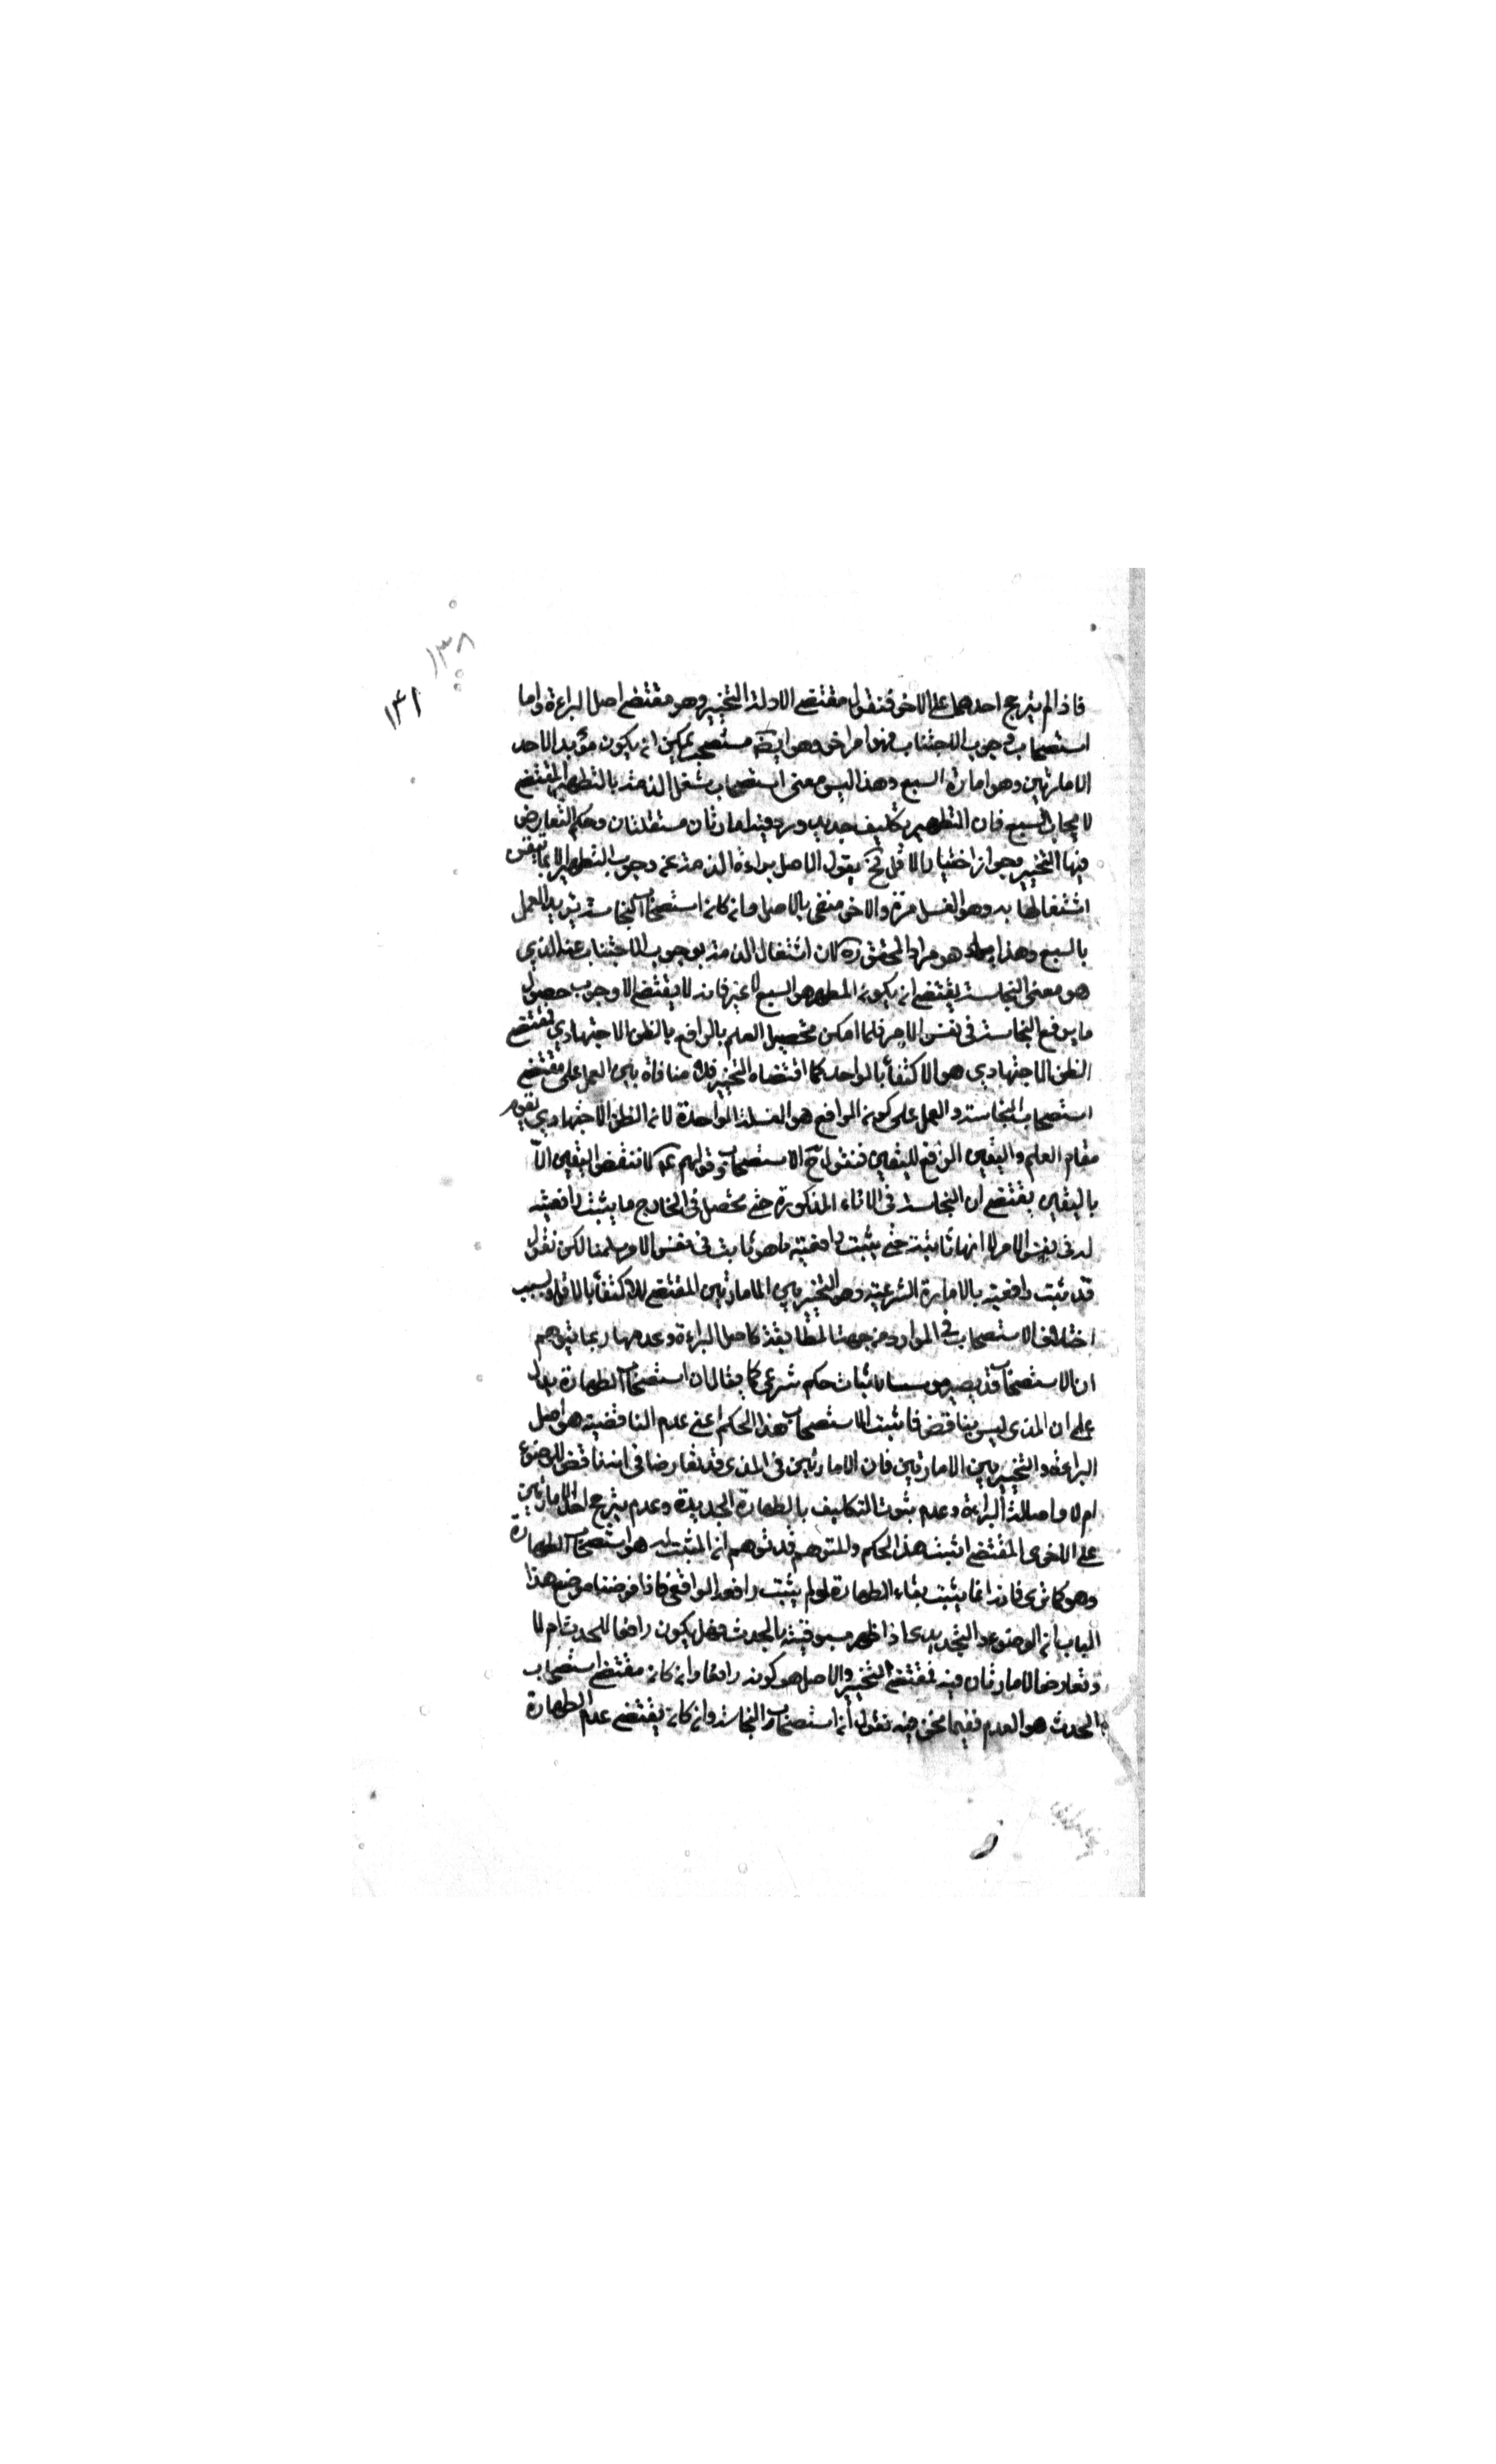 ١٣٨
١٤١
فاذا لم يترجح احدهما على الاخر فنقول مقتضى الادلة التخيير وهو مقتضى اصل البراءة واما
استصحاب وجوب الاجتناب فهو امر اخر وهو ايضا مستصحب يمكن ان يكون مؤيدا لاحد
الامارتين وهو امارة السبع وهذا ليس معنى استصحاب شغل الذمة بالتطهير المقتضى
لايجاب السبع فان التطهير تكليف جديد ورد فيه امارتان مستقلتان وحكم التعارض
فيها التخيير وجواز اختيار الاقل فح يقول الاصل براءة الذمة عن وجوب التطهير الا بما تيقن
اشتغالها به وهو الغسل مرة والاخر منفى بالاصل وان كان استصحاب النجاسة يؤيد العمل
بالسبع وهذا هو مراد المحقق ره لان اشتغال الذمة بوجوب الاجتناب عنه الذي
هو معنى النجاسة يقتضى ان يكون المطهر هو السبع لا غير فانه لا يقتضى الا وجوب حصول
ما يرفع النجاسة فى نفس الامر فلما امكن تحصيل العلم بالرافع بالظن الاجتهادي فمقتضى
الظن الاجتهادي هو الاكتفاء بالواحد كما اقتضاه التخيير فلا منافاة بين العمل على مقتضى
استصحاب النجاسة والعمل على كون الرافع هو الغسلة الواحدة لان الظن الاجتهادي يقوم
مقام العلم واليقين الرافع لليقين فنقول ح الاستصحاب وقولهم ع لا تنقض اليقين الا
باليقين يقتضى ان النجاسة فى الاناء المذكورة حتى يحصل فى الخارج ما يثبت رافعيته
له فى نفس الامر لا انها ثابتة حتى يثبت رافعية ما هو ثابت فى نفس الامر سلمنا لكن نقول
قد ثبت رافعيته بالامارة الشرعية وهو التخيير بين الامارتين المقتضى للاكتفاء بالاقل وبسبب
اختلاف الاستصحاب فى الموارد من جهة المطابقة لاصل البراءة وعدمها ربما يتوهم
ان الاستصحاب قد يصير سببا لاثبات حكم شرعى كما يقال ان استصحاب الطهارة يدل
على ان المذى ليس بناقض فاثبت الاستصحاب هذا الحكم اعنى عدم الناقضية هو اصل
البراءة والتخيير بين الامارتين فان الامارتين فى المذى قد تعارضا فى انه ناقض للوضوء
ام لا واصالة البراءة وعدم ثبوت التكليف بالطهارة الجديدة وعدم ترجح احد الامارتين
على الاخرى المقتضى اثبت هذا الحكم والمتوهم قد توهم ان المثبت له هو استصحاب الطهارة
وهو كما ترى فانه انما يثبت بقاء الطهارة لو لم يثبت رافعه الواقعى فاذا فرضنا موضع هذا
الباب ان الوضوء التجديدى اذا ظهر مسبوقيته بالحدث فهل يكون رافعا للحدث ام لا
وتعارض الامارتان فيه فمقتضى التخيير والاصل هو كونه رافعا وان كان مقتضى استصحاب
الحدث هو العدم ففيما نحن فيه نقول ان استصحاب النجاسة وان كان يقتضى عدم الطهارة